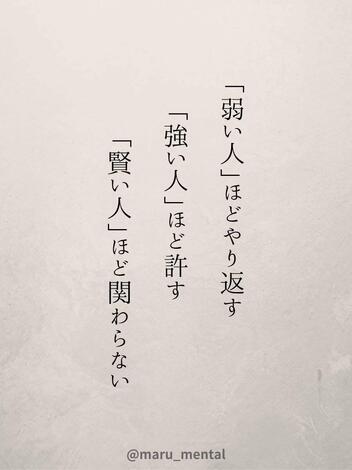 「弱い人」ほどやり返す
「強い人」ほど許す
「賢い人」ほど関わらない
@maru_mental